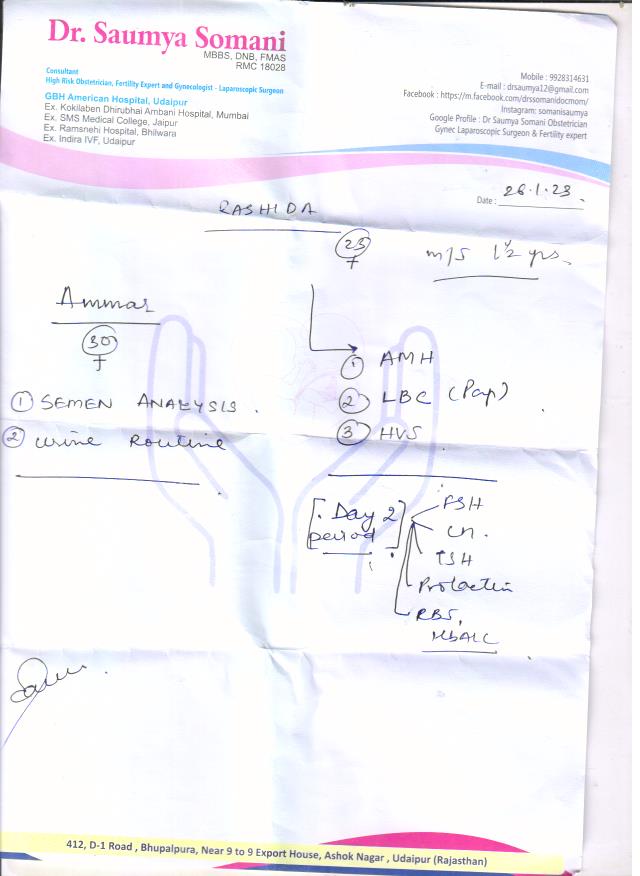 Dr. Saumya Somani
MBBS, DNB, FMAS
RMC 18028
Consultant
High Risk Obstetrician, Fertility Expert and Gynecologist - Laparoscopic Surgeon
GBH American Hospital, Udaipur
Ex. Kokilaben Dhirubhai Ambani Hospital, Mumbai
Ex. SMS Medical College, Jaipur
Ex. Ramsnehi Hospital, Bhilwara
Ex. Indira IVF, Udaipur
Mobile : 9928314631
E-mail : drsaumya12@gmail.com
Facebook : https://m.facebook.com/drssomanidocmom/
Instagram: somanisaumya
Google Profile : Dr Saumya Somani Obstetrician
Gynec Laparoscopic Surgeon & Fertility expert
Date : 26.1.23
RASHIDA
23
F
m/s 1½ yrs.
Ammar
30
F
① SEMEN ANALYSIS.
② Urine Routine
① AMH
② LBC (Pap)
③ HVS
[. Day 2
period]
FSH
LH.
TSH
Prolactin
RBS,
HbA1C
412, D-1 Road , Bhupalpura, Near 9 to 9 Export House, Ashok Nagar , Udaipur (Rajasthan)